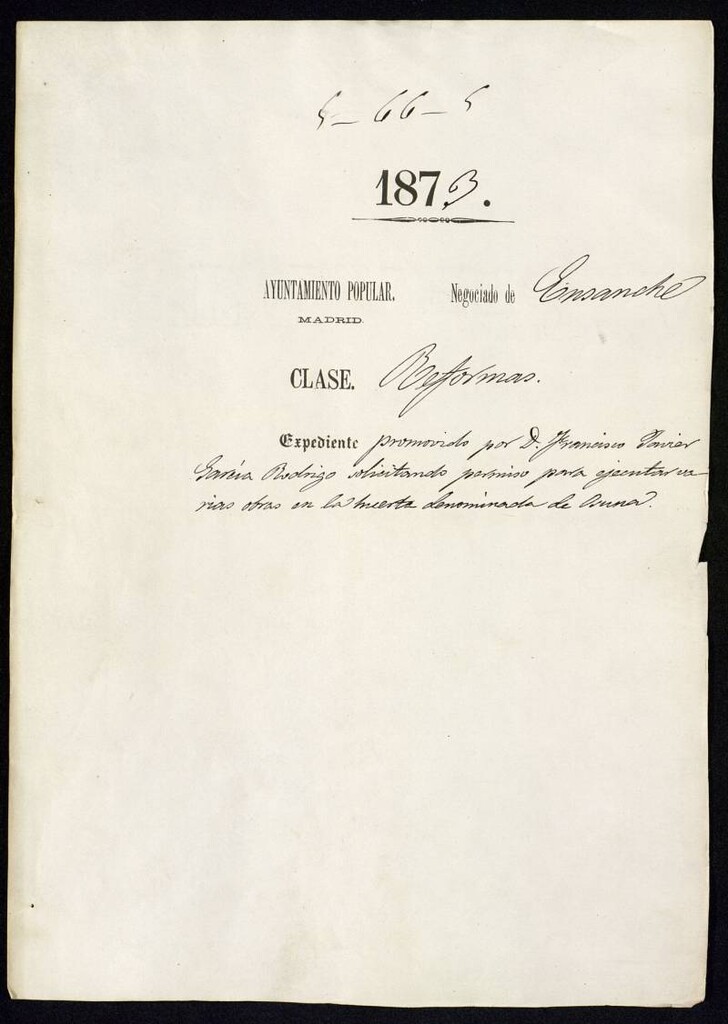 5-66-5
1873.
AYUNTAMIENTO POPULAR. Negociado de Ensanche
MADRID.
CLASE. Refformas.
Expediente promovido por D. Francisco Javier
García Rodrigo solicitando permiso para ejecutar va-
rias obras en la huerta denominada de Osuna.